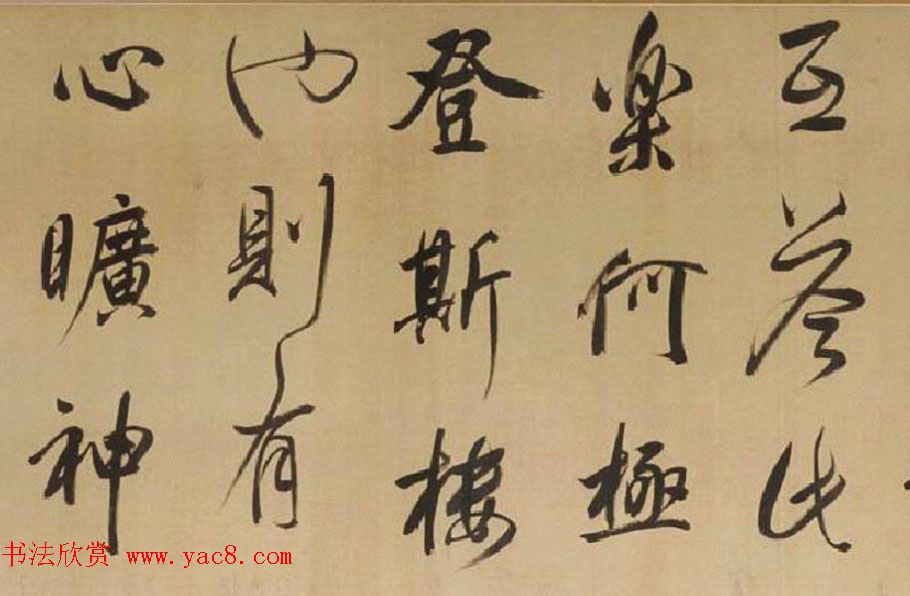 互荅此
樂何極
登斯樓
也則有
心曠神
书法欣赏 www.yac8.com